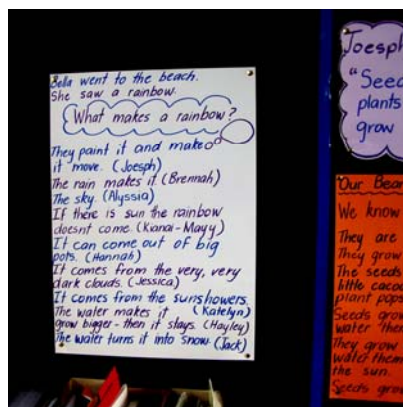 Bella went to the beach.
She saw a rainbow.
What makes a rainbow?
They paint it and make
it move. (Joesph)
The rain makes it. (Brennah)
The sky. (Alyssia)
If there is sun the rainbow
doesnt come. (Kianai-Mayy)
It can come out of big
pots. (Hannah)
It comes from the very, very
dark clouds. (Jessica)
It comes from the sunshowers.
The water makes it (Katelyn)
grow bigger - then it stays. (Hayley)
The water turns it into snow. (Jack)
Joesph
"Seed
plants
grow
Our Bear
We know
They are
They grow
The seeds
little cacoo
plant pops
Seeds grow
water them
They grow
water them
the sun.
Seeds grow